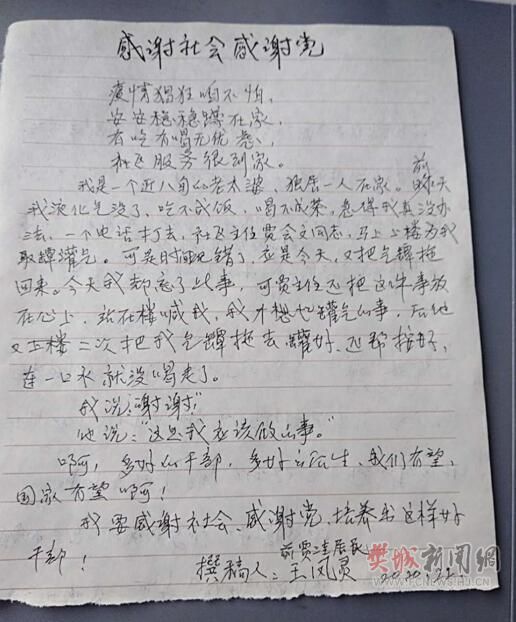 感谢社会感谢党
疫情猖狂咱不怕,
安安稳稳蹲在家,
有吃有喝无忧愁,
社区服务很到家。
我是一个近八旬的老太婆,独居一人在家。前昨天
我液化气没了,吃不成饭,喝不成茶,急得我真没办
法,一个电话打去,社区主任贾会文同志,马上上楼为我
取罐灌气。可是时间错了,应是今天,又把气罐拖
回来。今天我却忘了此事,可贾主任不把这件事放
在心上,站在楼喊我,我才想也罐气的事,后他
又上楼二次把我气罐拖去罐好,还帮接好,
连一口水就没喝走了。
我说:"谢谢!"
他说:"这是我应该做的事。"
啊!多好的干部,多好的后生,我们有望,
国家有望啊!
我要感谢社会、感谢党、培养出这样好
干部!
前贾洼居民
撰稿人:王凤灵
樊城新闻网
WWW.FCNEWS.HJ.CN